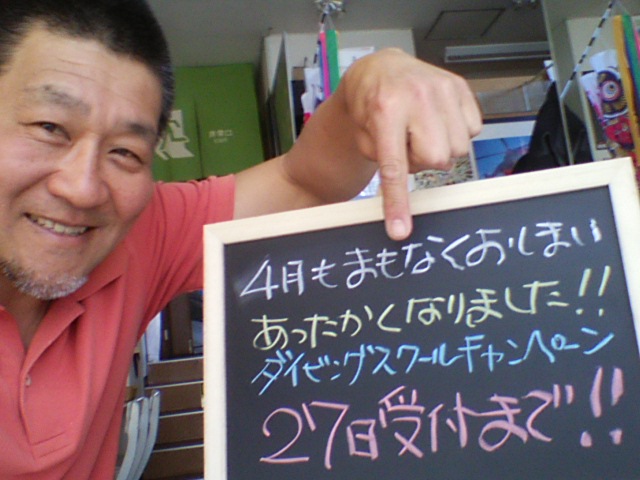 4月もまもなくおしまい
あったかくなりました!!
ダイビングスクールキャンペーン
27日受付まで!!
非常口